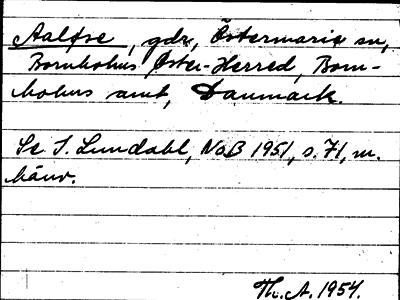 Aaløse, gdr, Östermarie sn,
Bornholms Øster-Herred, Born-
holms amt, Danmark.
Se I. Lundahl, NoB 1951, s. 71, m.
hänv.
Th. A. 1954.